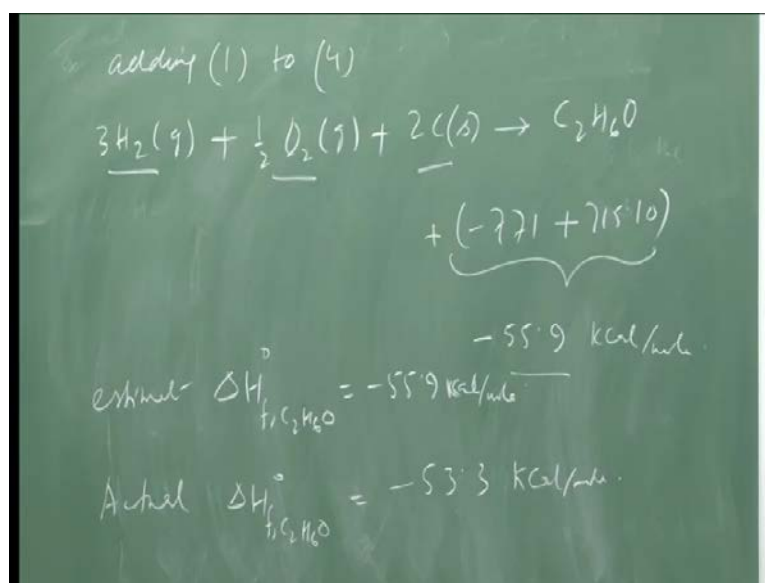 adding (1) to (4)
3H₂(g) + ½ O₂(g) + 2C(s) → C₂H₆O
+ (-771 + 715.10)
-55.9 Kcal/mole.
estimat ΔH°f,C₂H₆O = -55.9 Kcal/mole.
Actual ΔH°f,C₂H₆O = -53.3 Kcal/mole.